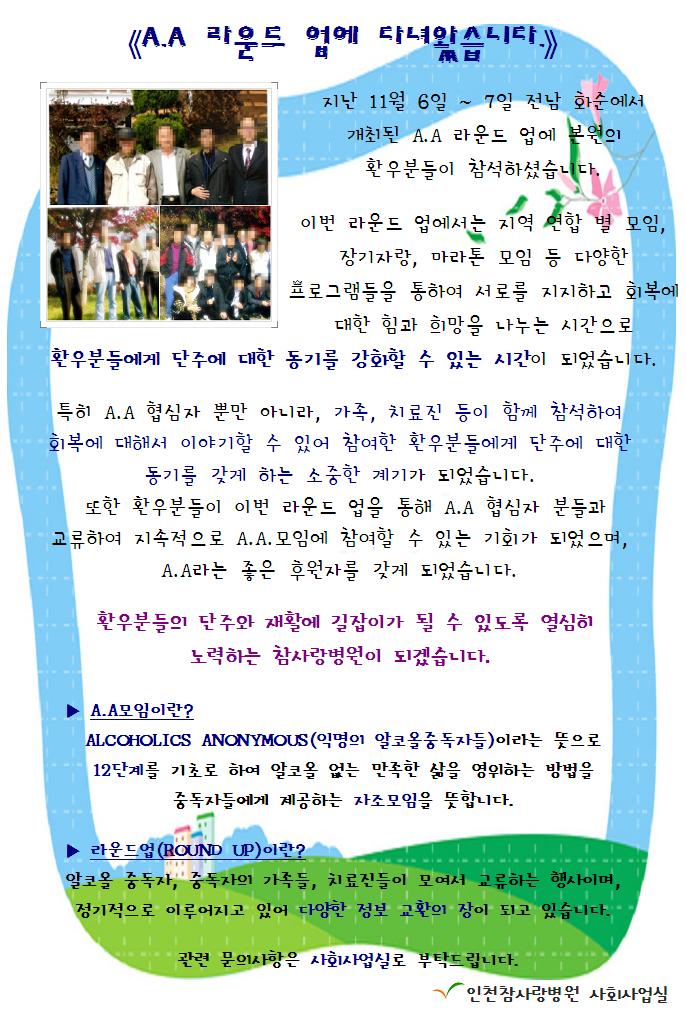 《A.A 라운드 업에 다녀왔습니다.》
지난 11월 6일 ~ 7일 전남 화순에서
개최된 A.A 라운드 업에 본원의
환우분들이 참석하셨습니다.
이번 라운드 업에서는 지역 연합 별 모임,
장기자랑, 마라톤 모임 등 다양한
프로그램들을 통하여 서로를 지지하고 회복에
대한 힘과 희망을 나누는 시간으로
환우분들에게 단주에 대한 동기를 강화할 수 있는 시간이 되었습니다.
특히 A.A 협심자 뿐만 아니라, 가족, 치료진 등이 함께 참석하여
회복에 대해서 이야기할 수 있어 참여한 환우분들에게 단주에 대한
동기를 갖게 하는 소중한 계기가 되었습니다.
또한 환우분들이 이번 라운드 업을 통해 A.A 협심자 분들과
교류하여 지속적으로 A.A.모임에 참여할 수 있는 기회가 되었으며,
A.A라는 좋은 후원자를 갖게 되었습니다.
환우분들의 단주와 재활에 길잡이가 될 수 있도록 열심히
노력하는 참사랑병원이 되겠습니다.
▶ A.A모임이란?
ALCOHOLICS ANONYMOUS(익명의 알코올중독자들)이라는 뜻으로
12단계를 기초로 하여 알코올 없는 만족한 삶을 영위하는 방법을
중독자들에게 제공하는 자조모임을 뜻합니다.
▶ 라운드업(ROUND UP)이란?
알코올 중독자, 중독자의 가족들, 치료진들이 모여서 교류하는 행사이며,
정기적으로 이루어지고 있어 다양한 정보 교환의 장이 되고 있습니다.
관련 문의사항은 사회사업실로 부탁드립니다.
인천참사랑병원 사회사업실